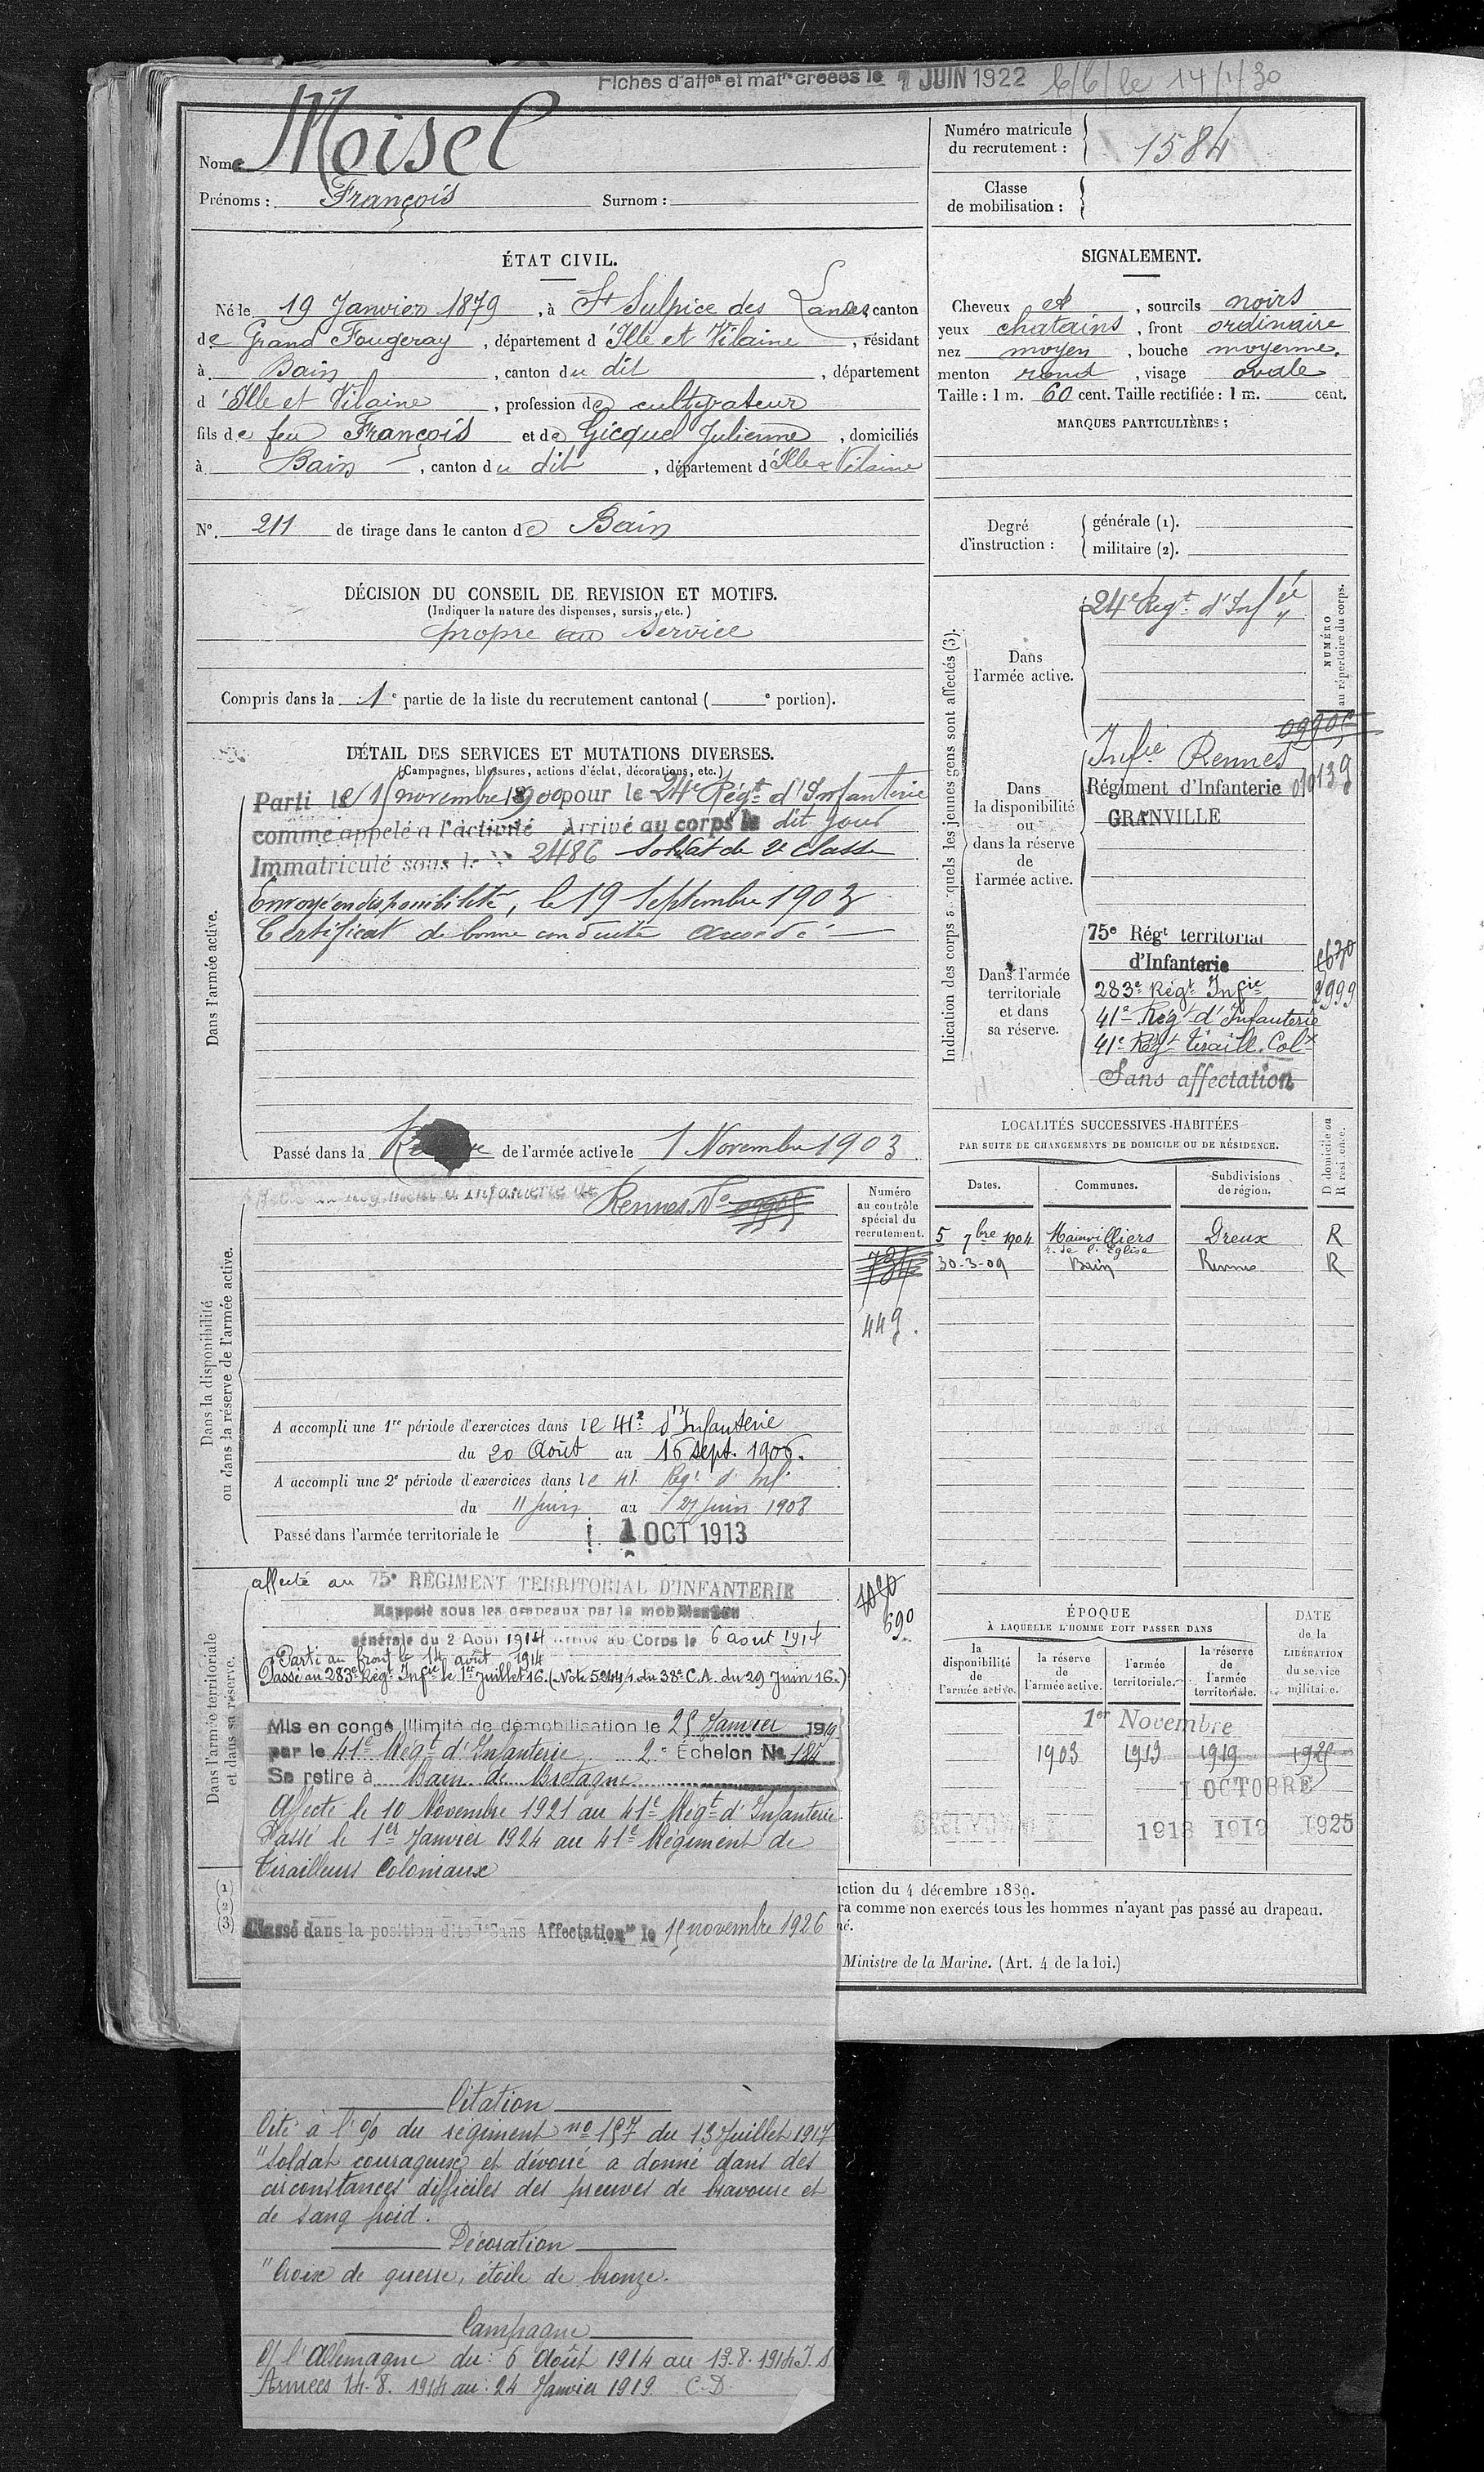 Fiches d'affon et matre créées le 1 JUIN 1922
Nom : Moisel
Prénoms : François Surnom :
Numéro matricule
du recrutement : 1584
Classe
de mobilisation :
ÉTAT CIVIL.
Né le 19 Janvier 1879, à St Sulpice des Landes, canton
de Grand Fougeray, département d'Ille et Vilaine, résidant
à Bain, canton du dit, département
d'Ille et Vilaine, profession de cultivateur
fils de feu François et de Gicquel Julienne, domiciliés
à Bain, canton du dit, département d'Ille & Vilaine
No. 211 de tirage dans le canton de Bain
SIGNALEMENT.
Cheveux et, sourcils noirs
yeux chatains, front ordinaire
nez moyen, bouche moyenne.
menton rond, visage ovale
Taille : 1 m. 60 cent. Taille rectifiée : 1 m. cent.
MARQUES PARTICULIÈRES :
Degré
d'instruction :
générale (1).
militaire (2).
DÉCISION DU CONSEIL DE REVISION ET MOTIFS.
(Indiquer la nature des dispenses, sursis, etc.)
propre au service
Compris dans la 1e partie de la liste du recrutement cantonal ( e portion).
DÉTAIL DES SERVICES ET MUTATIONS DIVERSES.
(Campagnes, blessures, actions d'éclat, décorations, etc.)
Dans l'armée active.
Parti le 15 novembre 1900 pour le 24e Régt d'Infanterie
comme appelé à l'activité Arrivé au corps le dit jour
Immatriculé sous le No 2486 Soldat de 2e classe
Envoyé en disponibilité, le 19 Septembre 1903
Certificat de bonne conduite accordé
Passé dans la Réserve de l'armée active le 1 Novembre 1903
Indication des corps auxquels les jeunes gens sont affectés (3).
NUMÉRO
au répertoire du corps.
Dans
l'armée active.
24e Régt d'Infie
Dans
la disponibilité
ou
dans la réserve
de
l'armée active.
09905
Infie Rennes
Régiment d'Infanterie 010139
GRANVILLE
Dans l'armée
territoriale
et dans
sa réserve.
75e Régt territorial
d'Infanterie
283e Régt Infie
41e Régt d'Infanterie
41e Régt tiraill. Colx
Sans affectation
Dans la disponibilité
ou dans la réserve de l'armée active.
Affecté au Régiment d'Infanterie de Rennes No 09905
Numéro
au contrôle
spécial du
recrutement.
449.
A accompli une 1re période d'exercices dans le 41e d'Infanterie
du 20 Août au 16 sept. 1906.
A accompli une 2e période d'exercices dans le 41 Régt d'Inf.
du 11 Juin au 27 Juin 1908
Passé dans l'armée territoriale le 1 OCT 1913
LOCALITÉS SUCCESSIVES HABITÉES
PAR SUITE DE CHANGEMENTS DE DOMICILE OU DE RÉSIDENCE.
Dates. Communes. Subdivisions
de région.
D domicile ou
R résidence.
5 7bre 1904 Mainvilliers Dreux R
r. de l'Eglise
30-3-09 Bain Rennes R
Dans l'armée territoriale
et dans sa réserve.
affecté au 75e RÉGIMENT TERRITORIAL D'INFANTERIE
Rappelé sous les drapeaux par la mobilisation
générale du 2 Août 1914 Arrivé au Corps le 6 aout 1914
Parti au front le 14 août 1914
Passé au 283e Régt Infie le 1er Juillet 16. (Note 5244/4 du 38e C.A. du 29 Juin 16.)
690
Mis en congé illimité de démobilisation le 25 Janvier 1919
par le 41e Régt d'Infanterie 2e Échelon No 184
Se retire à Bain de Bretagne
Affecté le 10 Novembre 1921 au 41e Régt d'Infanterie
Passé le 1er Janvier 1924 au 41e Régiment de
Tirailleurs Coloniaux
Classé dans la position dite "Sans Affectation" le 15 novembre 1926
ÉPOQUE
À LAQUELLE L'HOMME DOIT PASSER DANS
DATE
de la
LIBÉRATION
du service
militaire.
la
disponibilité
de
l'armée active.
la réserve
de
l'armée active.
l'armée
territoriale.
la réserve
de
l'armée
territoriale.
1er Novembre
1903 1913 1919 1925
1 OCTOBRE
1913 1919 1925
(1)
(2)
(3)
ction du 4 décembre 1889.
ra comme non exercés tous les hommes n'ayant pas passé au drapeau.
né.
Ministre de la Marine. (Art. 4 de la loi.)
Citation
Cité à l'o/o du régiment no 157 du 13 Juillet 1917
"Soldat courageux et dévoué a donné dans des
circonstances difficiles des preuves de bravoure et
de sang froid.
Décoration
"Croix de guerre, étoile de bronze.
Campagne
C/ l'Allemagne du: 6 Août 1914 au 13.8.1914 I.S.
Armées 14.8.1914 au: 24 Janvier 1919. C.D